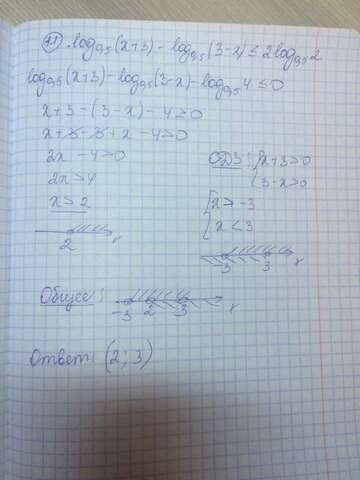 21 log₀,₅(x+3) - log₀,₅(3-x) ≤ 2log₀,₅2
log₀,₅(x+3) - log₀,₅(3-x) - log₀,₅4 ≤ 0
x+3 - (3-x) - 4 ≥ 0
x+3-3+x-4>0
2x-4>0
2x>4
x>2
2 x
ОДЗ: { x+3>0
3-x>0
{ x>-3
x<3
-3 3 x
Общее:
-3 2 3 x
Ответ: (2; 3)